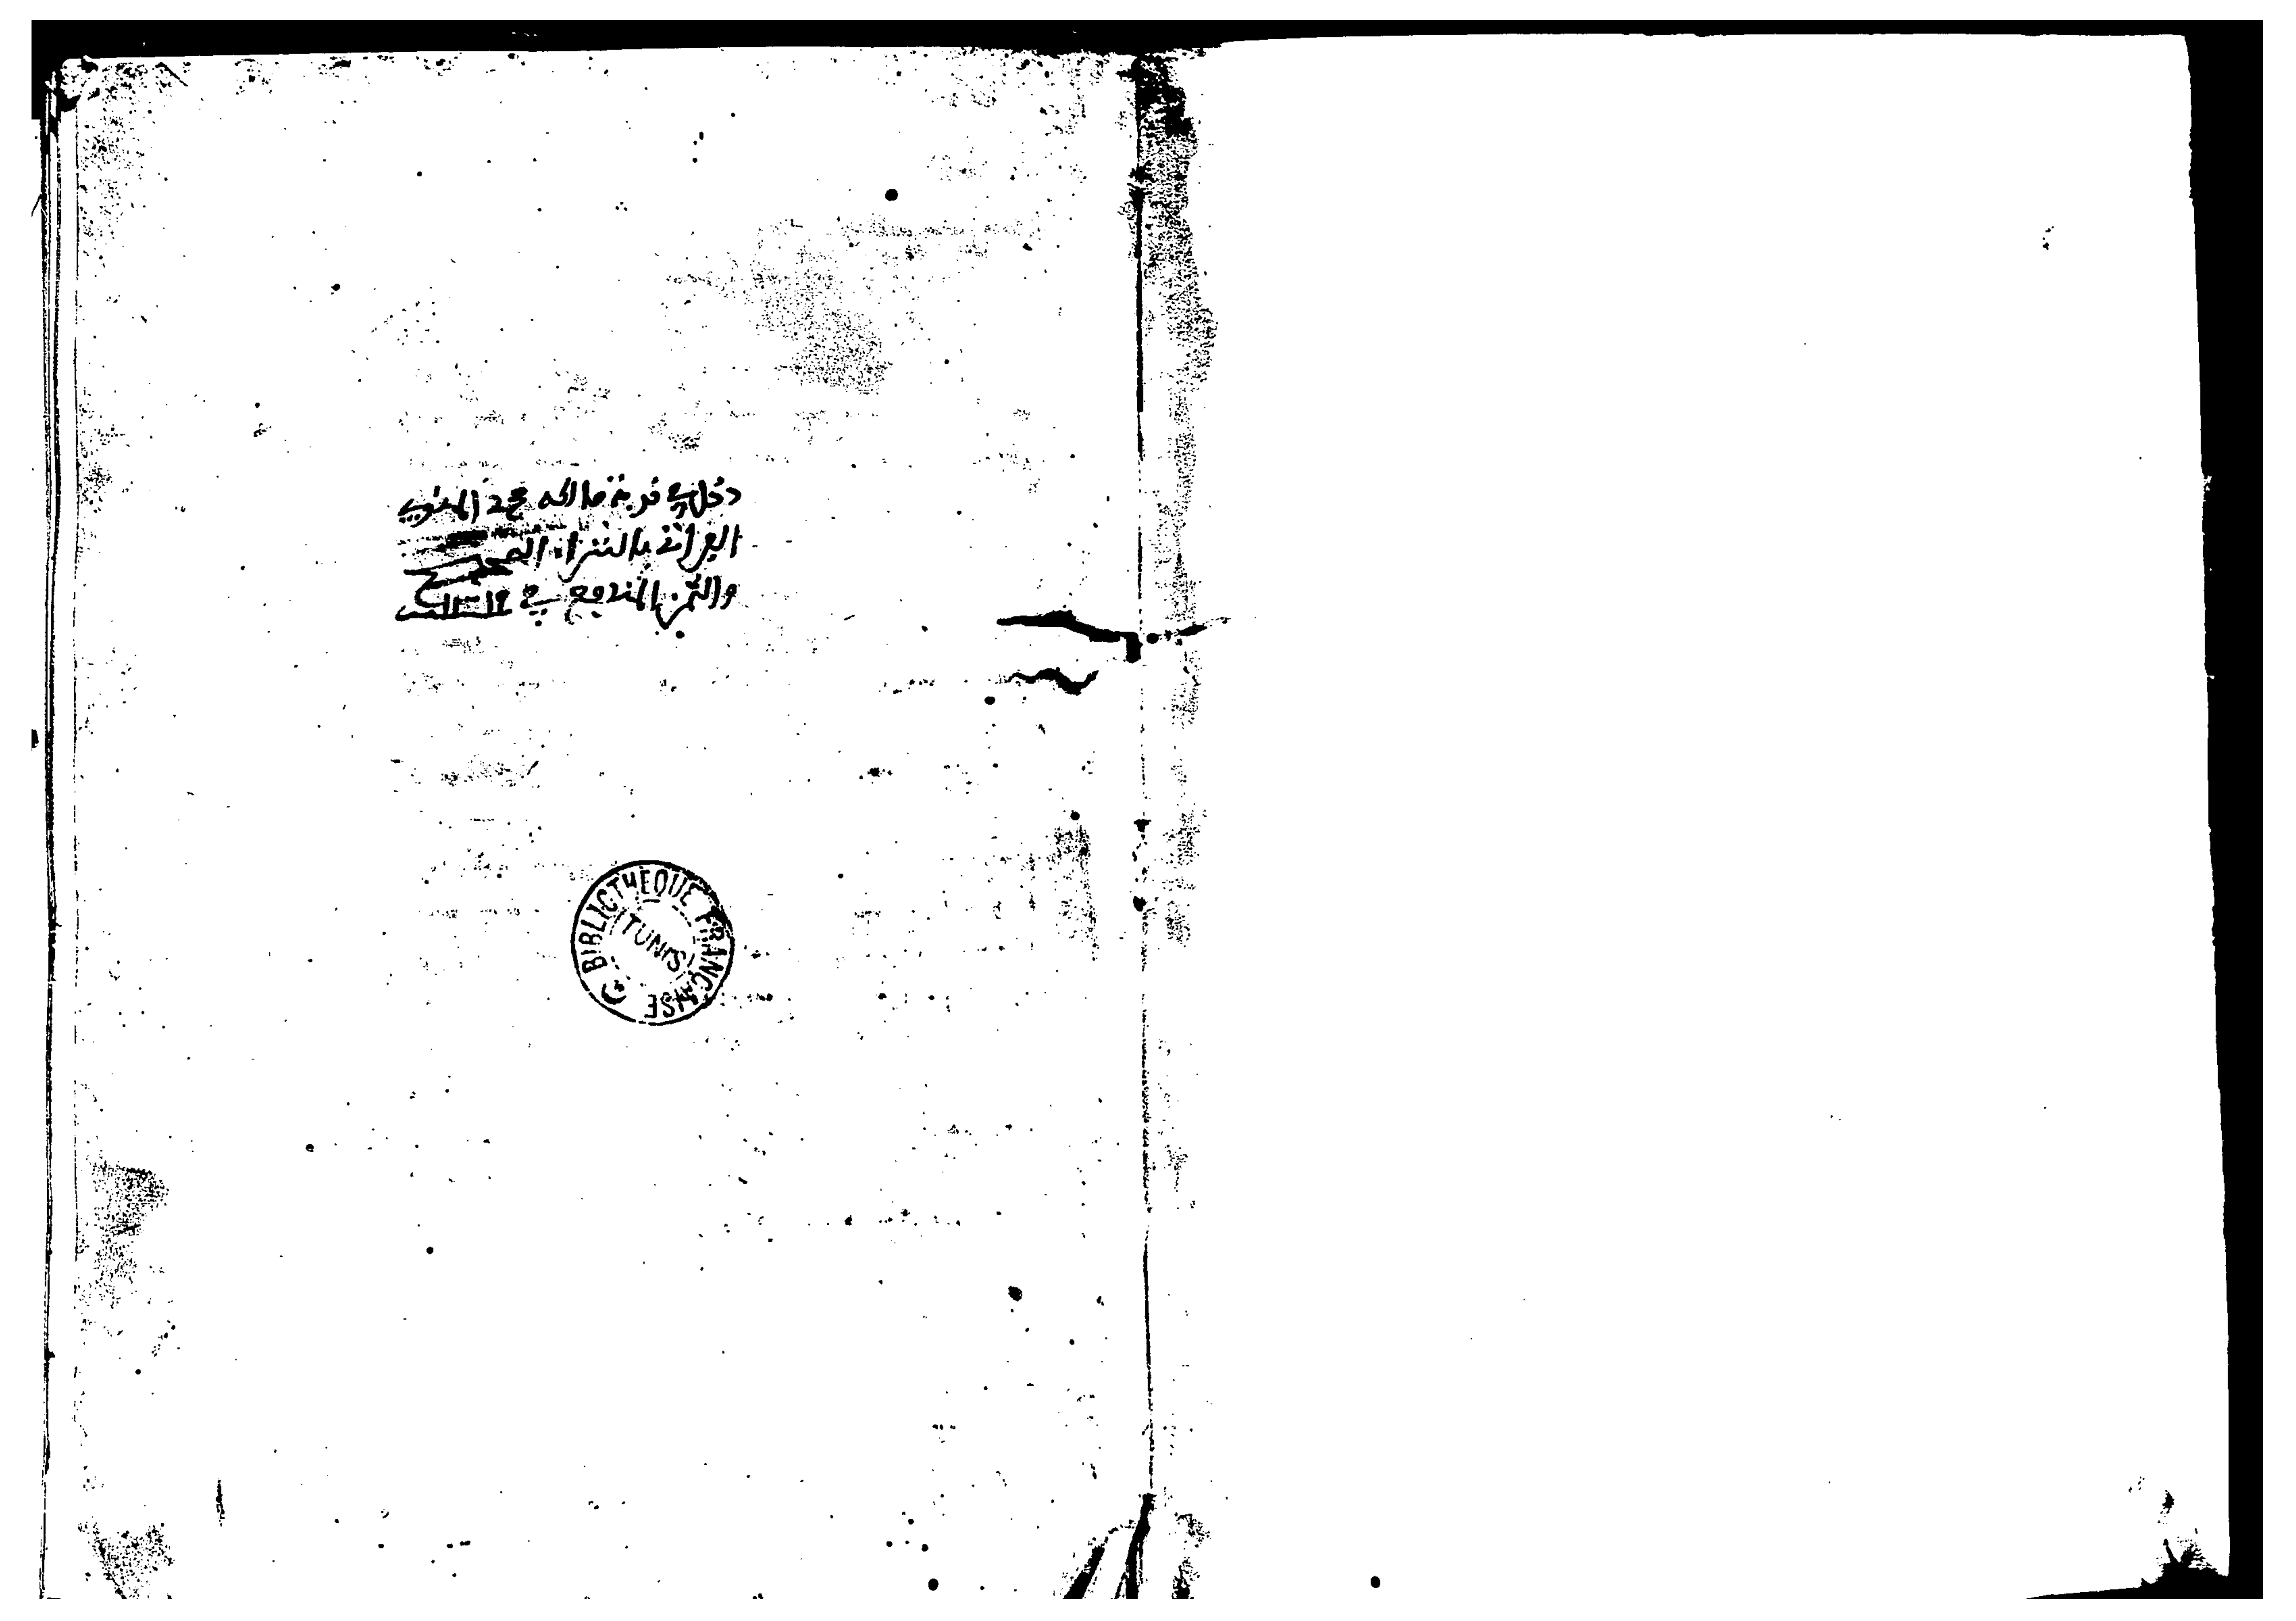 دخل في نوبة مالكه محمد المغربي
العرافي بالشراء الصحيح
والثمن المندفع في
BIBLIOTHEQUE FRANÇAISE
TUNIS